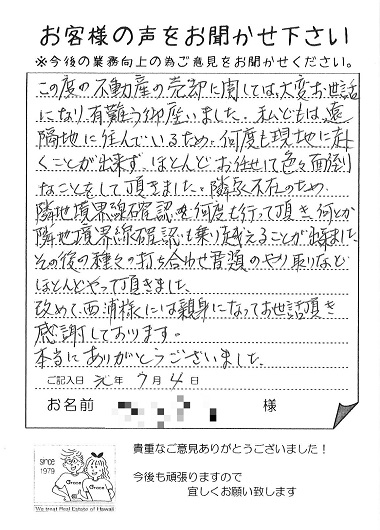 お客様の声をお聞かせ下さい
※今後の業務向上の為ご意見をお聞かせください。
この度の不動産の売却に関しては、大変お世話
になり有難う御座いました。私どもは、遠
隔地に住んでいるため、何度も現地に赴
くことが出来ず、ほとんどお任せして色々面倒
なことをして頂きました。隣家不在のため、
隣地境界線確認を何度も行って頂き、何とか
隣地境界線確認も乗り越えることが出来ました
その後の種々の打ち合わせ書類のやり取りなど
ほとんどやって頂きました。
改めて、西浦様には親身になってお世話頂き
感謝しております。
本当にありがとうございました。
ご記入日 元年 7月 4日
お名前 様
貴重なご意見ありがとうございました！
今後も頑張りますので
宜しくお願い致します
since
1979
Green
Green
We treat Real Estate of Hawaii